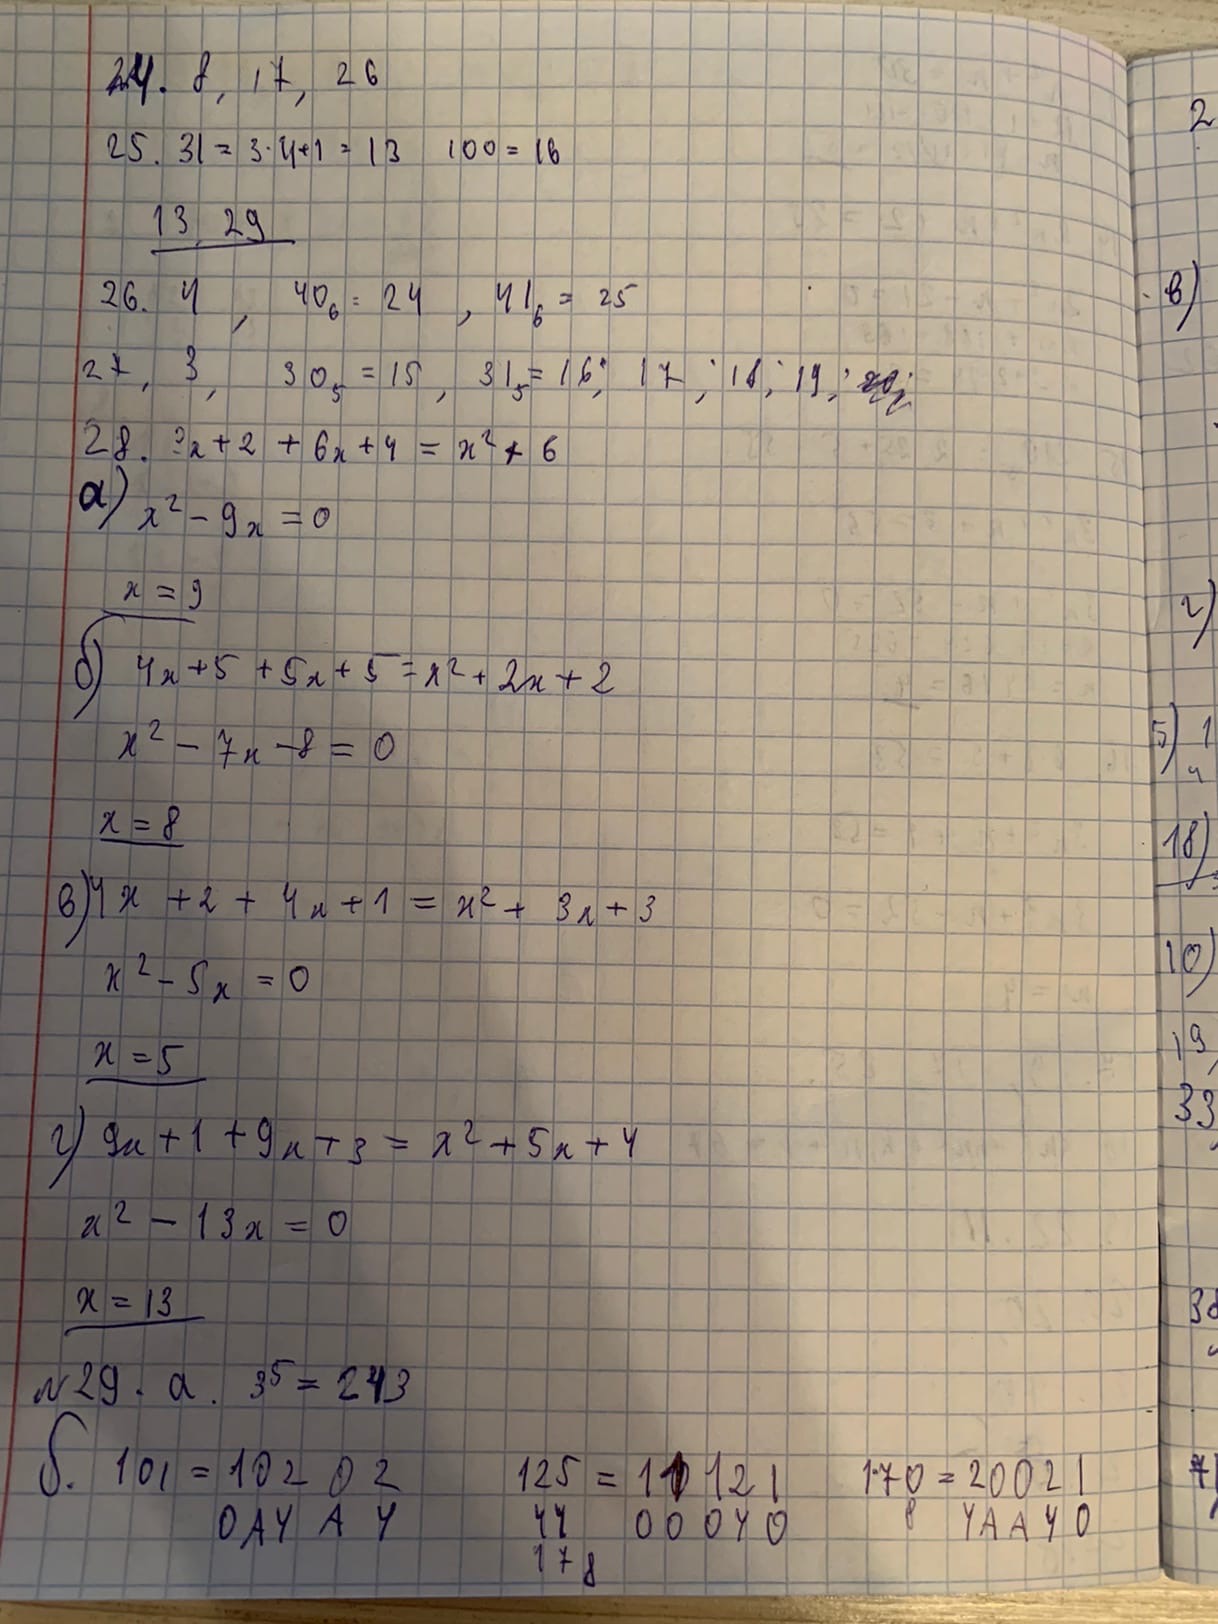 24. 8, 17, 26
25. 31 = 3·4+1 = 13 100 = 16
13, 29
26. 4, 40₆ = 24, 41₆ = 25
27, 3, 30₅ = 15, 31₅ = 16; 17; 18; 19;
28. 3x+2 + 6x+4 = x² + 6
а) x² - 9x = 0
x = 9
б) 4x+5 + 5x+5 = x² + 2x + 2
x² - 7x - 8 = 0
x = 8
в) 4x + 2 + 4x + 1 = x² + 3x + 3
x² - 5x = 0
x = 5
г) 9x + 1 + 9x + 3 = x² + 5x + 4
x² - 13x = 0
x = 13
№29. а. 3⁵ = 243
б. 101 = 10202 125 = 11121 170 = 20021
ОАУАУ 44 ОООУО 8 УААУО
17 8
2
в)
г)
5) 1
18)
10)
19,
33
7)